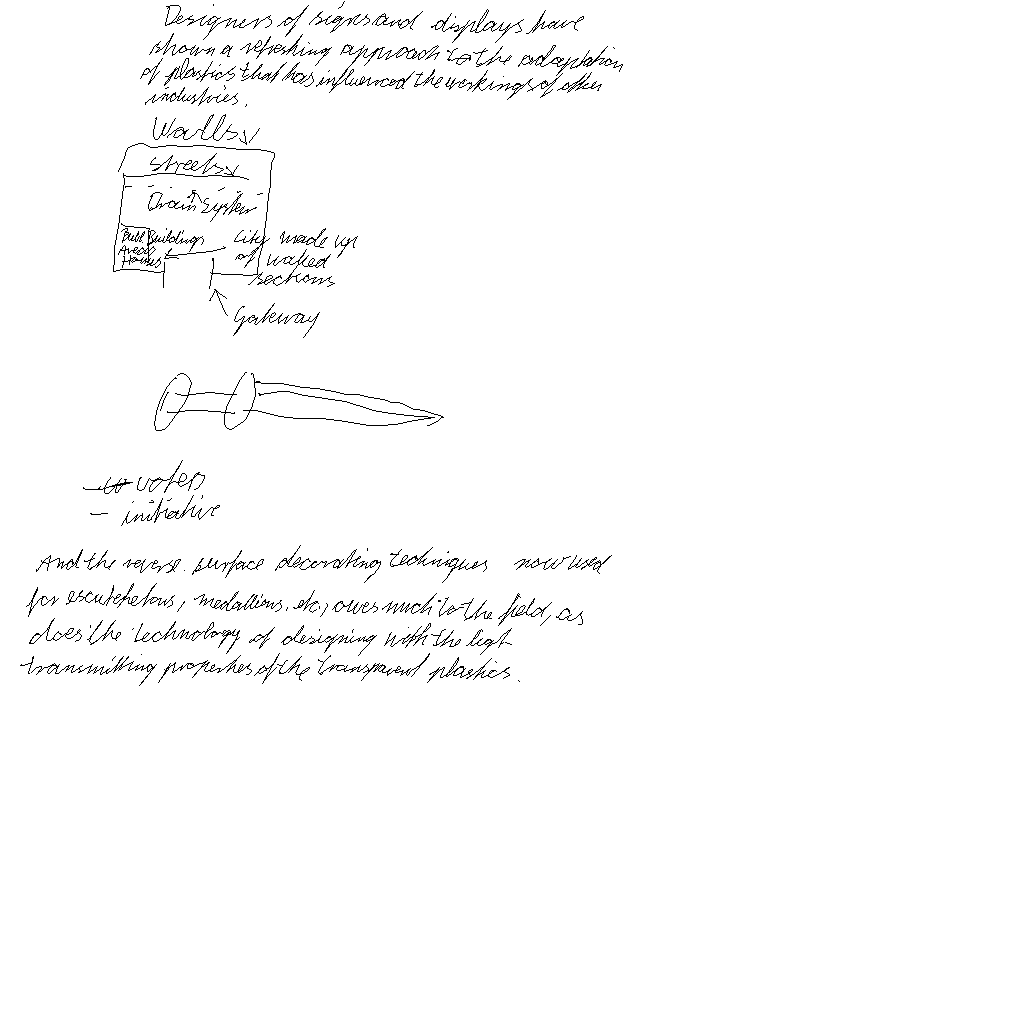 Designers of signs and displays have
shown a refreshing approach to the adaptation
of plastics that has influenced the workings of other
industries.
Walls
Streets
Drain System
Buildings
Areas
Houses
City made up
of walled
sections
Gateway
- voters
- initiative
And the reverse surface decorating techniques now used
for escutcheons, medallions, etc., owes much to the field, as
does the technology of designing with the light
transmitting properties of the transparent plastics.